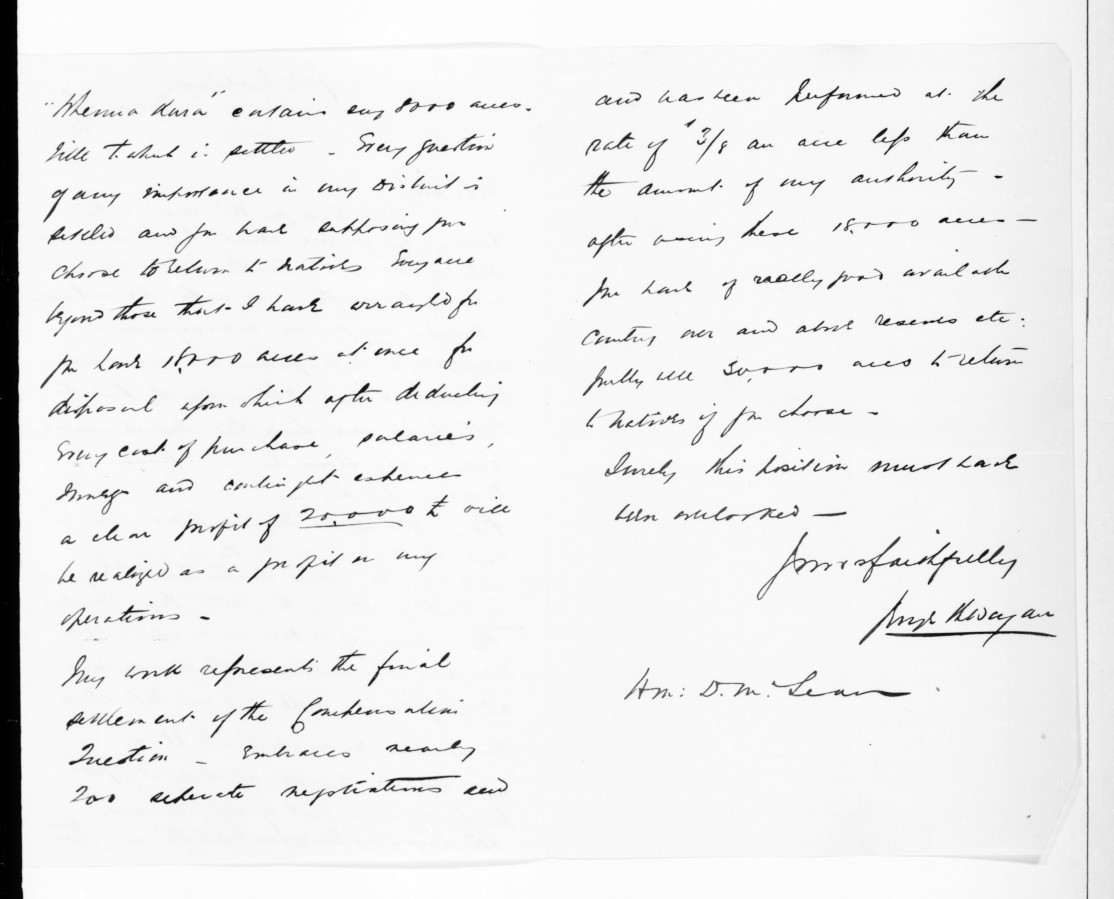 "Whenua Kura" contains say 8000 acres.
Title to which is settled - Every question
of any importance in my District is
settled and you have supposing you
choose to return to Natives Every acre
beyond those that I have arranged for
you have 18,000 acres at once for
disposal upon which after deducting
Every cost of purchase, salaries,
and contingent expences
a clear profit of 20,000 £ will
be realized as a profit on my
operations -
My work represents the final
settlement of the Compensation
Question - Embraces nearly
200 seperate negotiations and
and has been performed at the
rate of 1 3/8 an acre less than
the amount of my authority -
after using these 18,000 acres -
you have of really good available
country over and above reserves etc:
fully 30,000 acres to return
to Natives if you choose -
Surely this position must have
been overlooked -
Yours faithfully
Hon: D. McLean